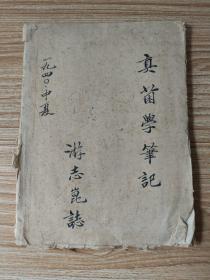 真菌學筆記
一九四〇年夏
游志崑誌